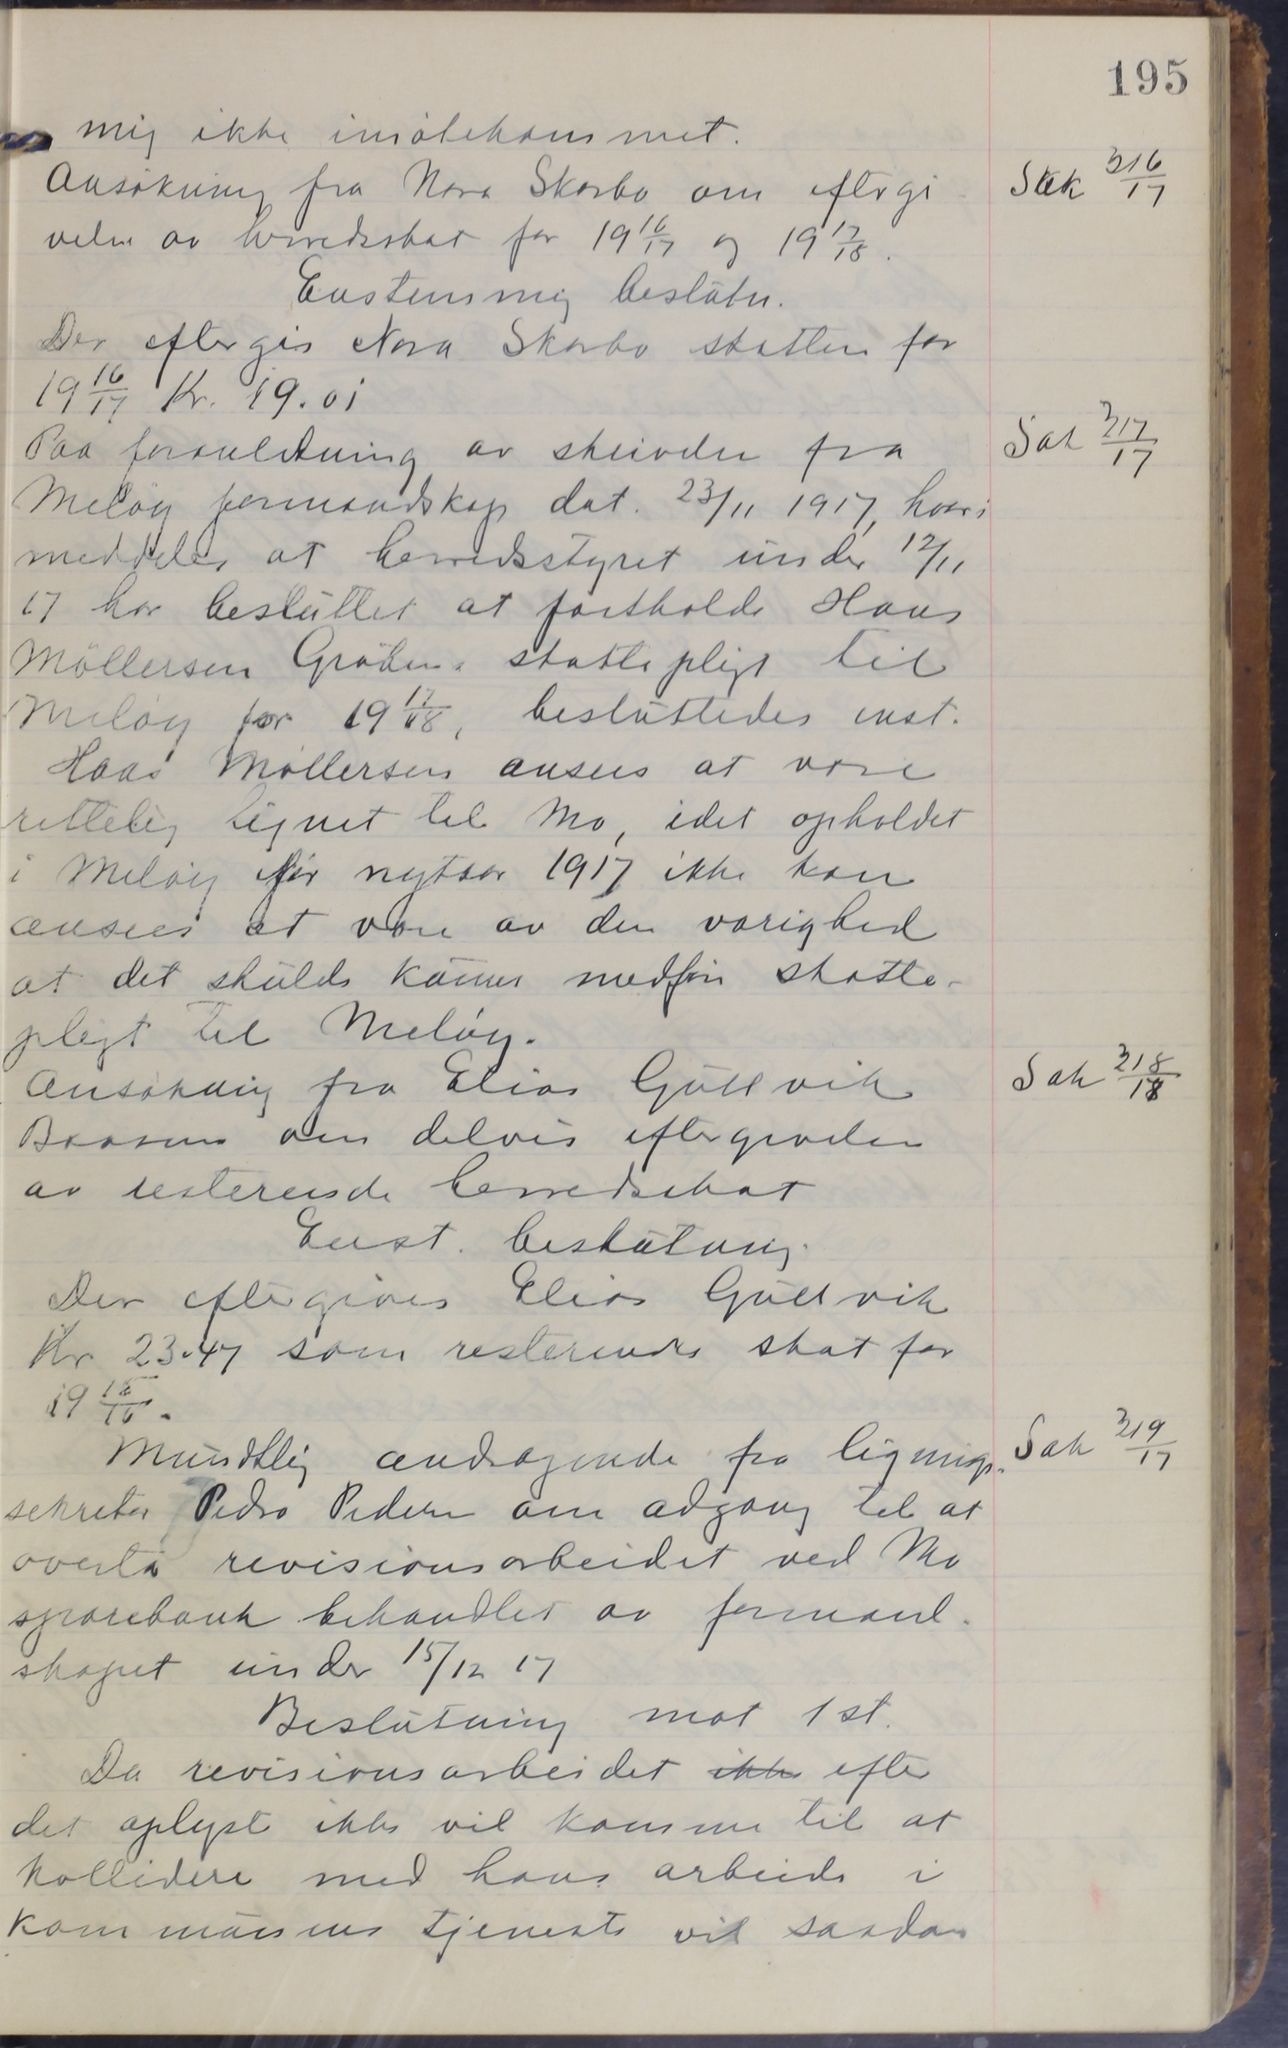 195
mig ikke imøtekommet.
Ansøkning fra Nora Skarbo om eftergi
velse av herredsskat for 19 16/17 og 19 17/18.
Sak 316/17
Enstemmig beslutn.
Der eftergis Nora Skarbo skatten for
19 16/17 Kr. 19.01
Paa foranledning av skrivelse fra
Sak 317/17
Meløy formandskap dat. 23/11 1917, hvori
meddeles at herredsstyret under 12/11
17 har besluttet at fastholde Hans
Möllersen skattepligt til
Meløy for 19 17/18, besluttedes enst.
Hans Möllersen ansees at være
rettelig lignet til Mo, idet opholdet
i Meløy før nytaar 1917 ikke kan
ansees at være av den varighed
at det skulde kunne medføre skatte-
pligt til Meløy.
Ansøkning fra Elias Gullvik
Sak 318/18
Baasmo om delvis eftergivelse
av resterende herredsskat
Enst. beslutning.
Der eftergives Elias Gullvik
Kr 23.47 som resterende skat for
19
Mundtlig andragende fra lignings-
Sak 319/17
sekretær Pedro Pedersen om adgang til at
overta revisionsarbeidet ved Mo
sparebank behandlet av formand-
skapet under 15/12 17
Beslutning mot 1 st.
Da revisionsarbeidet ikke efter
det oplyste ikke vil komme til at
kollidere med hans arbeide i
kommunens tjeneste vil saadan